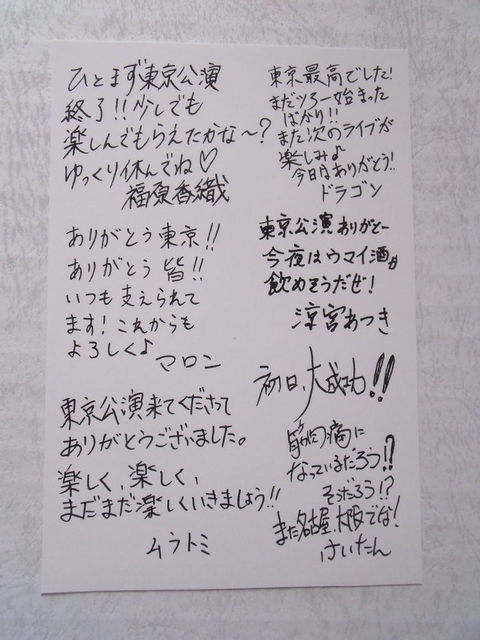 ひとまず東京公演
終了!!少しでも
楽しんでもらえたかな～?
ゆっくり休んでね♡
福原香織
ありがとう東京!!
ありがとう皆!!
いつも支えられて
ます!これからも
よろしく♪
マロン
東京公演来てくださって
ありがとうございました。
楽しく、楽しく、
まだまだ楽しくいきましょう!!
ムラトミ
東京最高でした!
まだツアー始まった
ばかり!!
また次のライブが
楽しみ♪
今日ありがとう!!
ドラゴン
東京公演ありがとー
今夜はウマイ酒が
飲めそうだぜ!
涼宮あつき
初日、大成功!!
筋肉痛に
なっているだろう!?
そうだろう!?
また名古屋、大阪でな!
けいたん